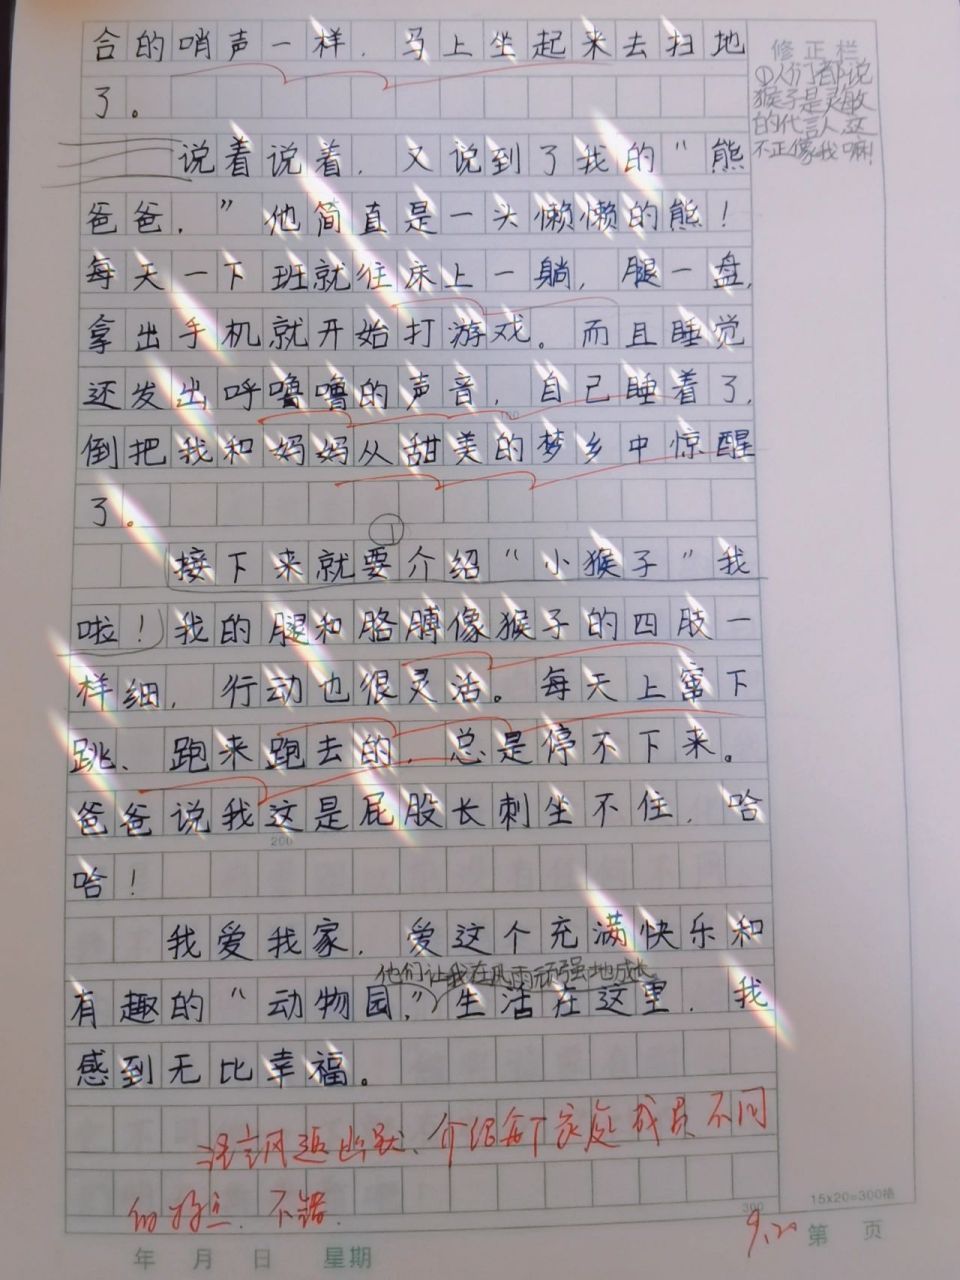 合的哨声一样，马上坐起来去扫地
了。
说着说着，又说到了我的“熊
爸爸，”他简直是一头懒懒的熊！
每天一下班就往床上一躺，腿一盘，
拿出手机就开始打游戏。而且睡觉
还发出呼噜噜的声音，自己睡着了，
倒把我和妈妈从甜美的梦乡中惊醒
了。
①
接下来就要介绍“小猴子”我
啦！我的腿和胳膊像猴子的四肢一
样细，行动也很灵活。每天上窜下
跳、跑来跑去的，总是停不下来。
爸爸说我这是屁股长刺坐不住，哈
哈！
我爱我家，爱这个充满快乐和
他们让我在风雨顽强地成长
有趣的“动物园，”生活在这里，我
感到无比幸福。
语言风趣幽默、介绍每个家庭成员不同
的特点，不错．
9.20
修正栏
①人们都说
猴子是灵敏
的代言人，这
不正像我嘛！
200
300
15x20=300格
年 月 日 星期
第 页